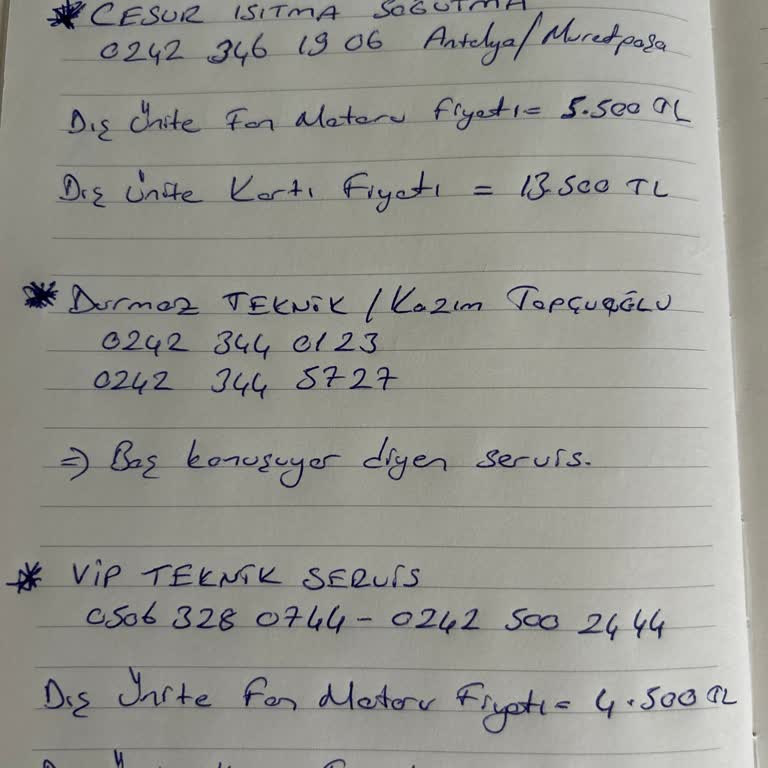 * CESUR ISITMA SOĞUTMA
0242 346 19 06 Antalya/Muratpaşa
Dış Ünite Fan Motoru fiyatı = 5.500 TL
Dış Ünite Kartı Fiyatı = 13.500 TL
* Durmaz TEKNİK / Kazım TOPÇUOĞLU
0242 344 0123
0242 344 5727
=> Boş konuşuyor diyen servis.
* VİP TEKNİK SERVİS
0506 328 0744 - 0242 500 2444
Dış Ünite Fan Motoru Fiyatı = 4.500 TL